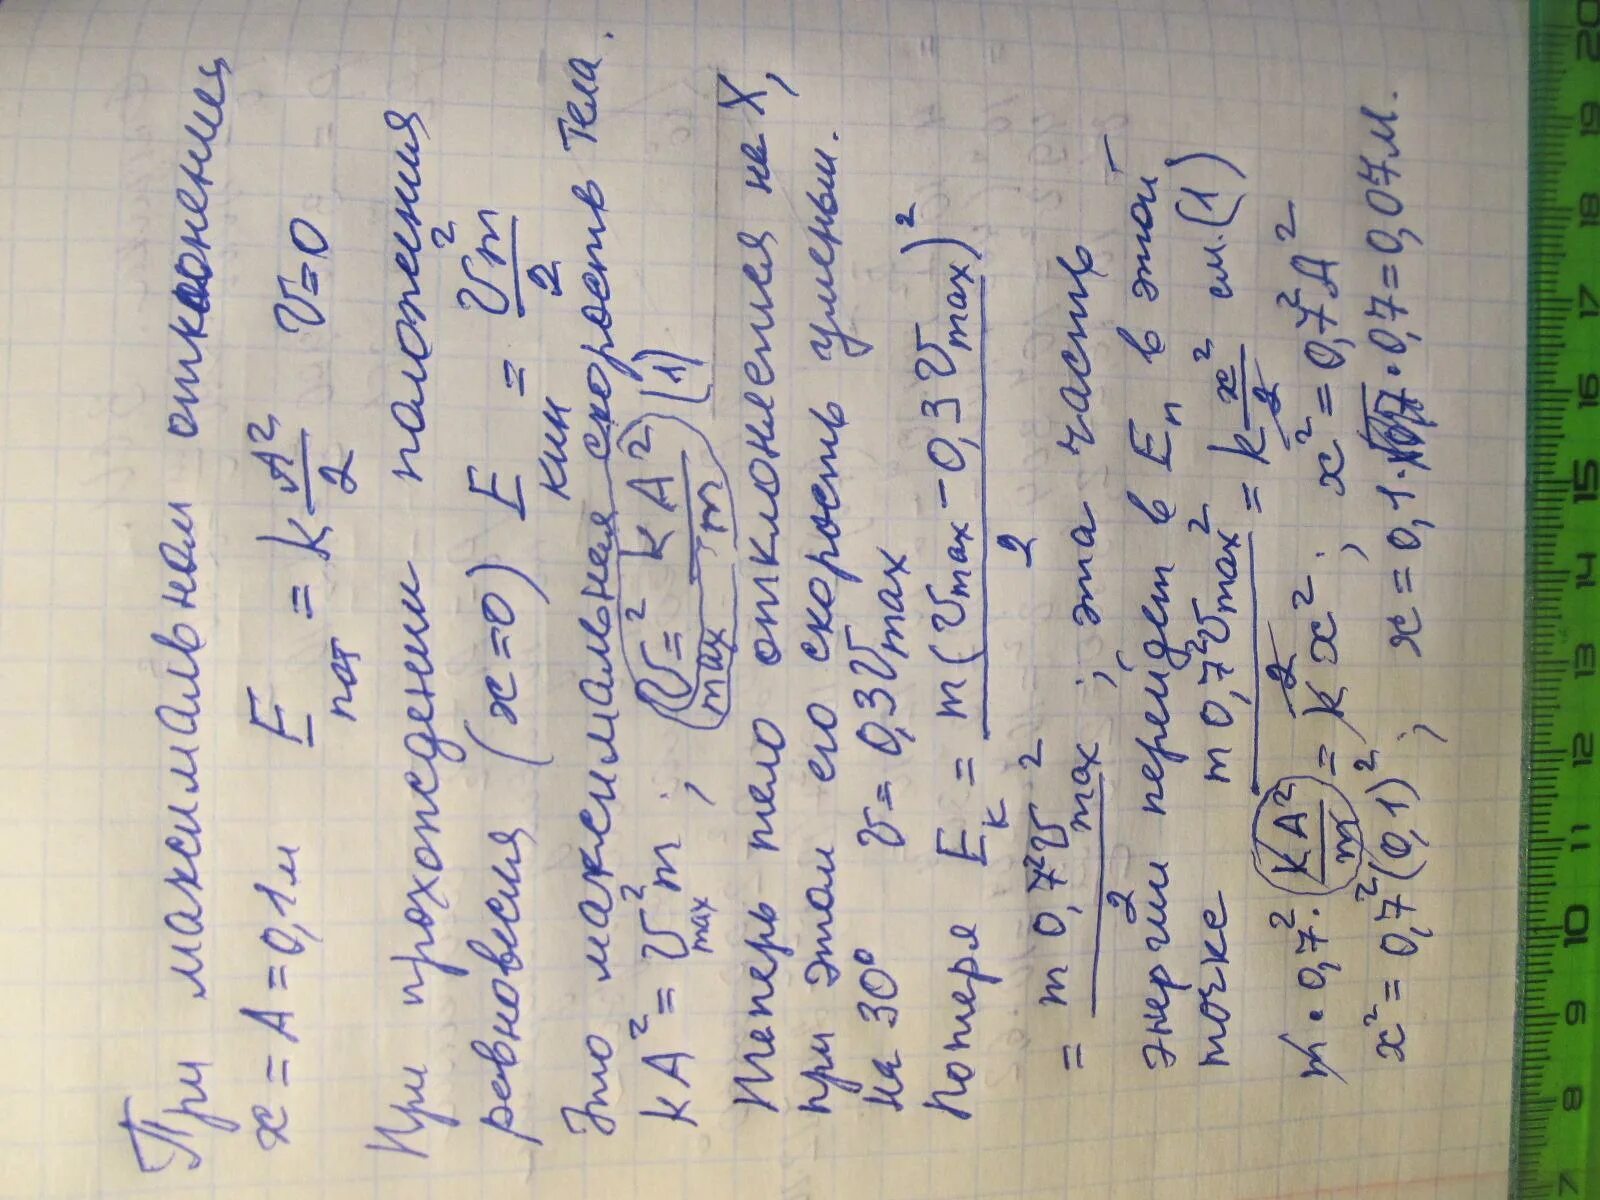 При максимальном отклонении
x = A = 0,1 м E пот = k A²/2 v = 0
При прохождении положения
равновесия (x = 0) E кин = v²m/2
Это максимальная скорость тела.
kA² = v²max m ; (v²max = kA²/m) (1)
Теперь тело отклоняется на X,
при этом его скорость уменьш.
на 30° v = 0,3 vmax
Потеря Eк = m(vmax - 0,3 vmax)²/2
= m 0,7² v²max/2 ; эта часть
энергии перейдет в Eп в этой
точке m 0,7² vmax²/2 = k x²/2 см. (1)
m · 0,7² · (kA²/m) = kx² ; x² = 0,7² A²
x² = 0,7² (0,1)² ; x = 0,1 · 0,7 = 0,07 м.
7 8 9 10 11 12 13 14 15 16 17 18 19 20